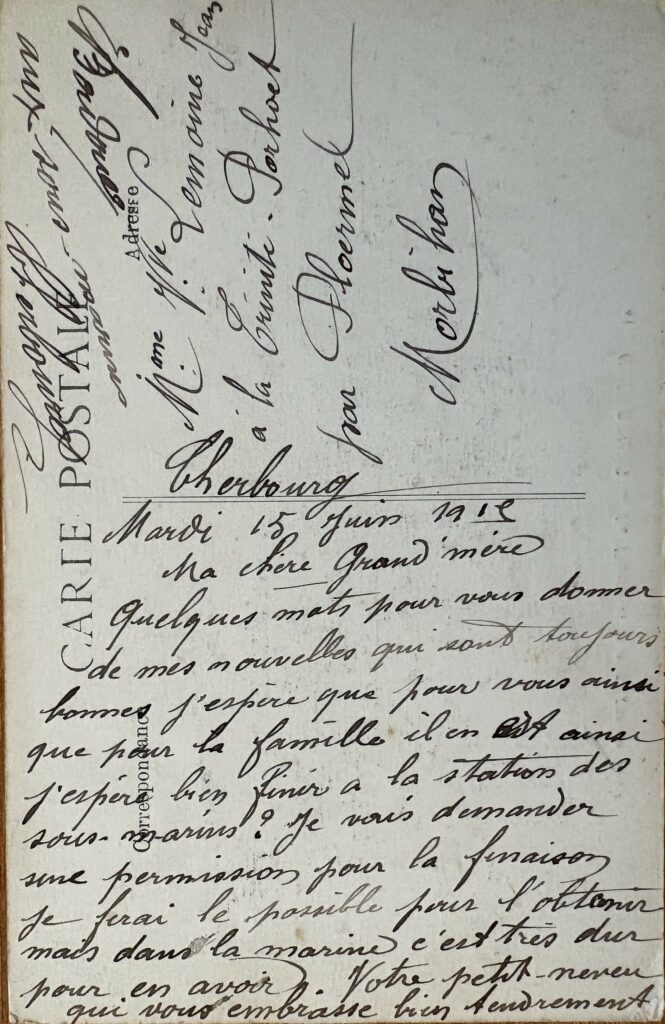 CARTE POSTALE
Correspondance
Adresse
Mme Vve Lemoine Jean
à la Trinité-Porhoët
par Ploermel
Morbihan
Cherbourg
Mardi 15 Juin 1915
Ma chère Grand'mère
Quelques mots pour vous donner
de mes nouvelles qui sont toujours
bonnes j'espère que pour vous ainsi
que pour la famille il en est ainsi
j'espère bien finir a la station des
sous-marins? Je vais demander
une permission pour la finaison
je ferai le possible pour l'obtenir
mais dans la marine c'est très dur
pour en avoir. Votre petit-neveu
qui vous embrasse bien tendrement
aux sous-marins
Cherbourg